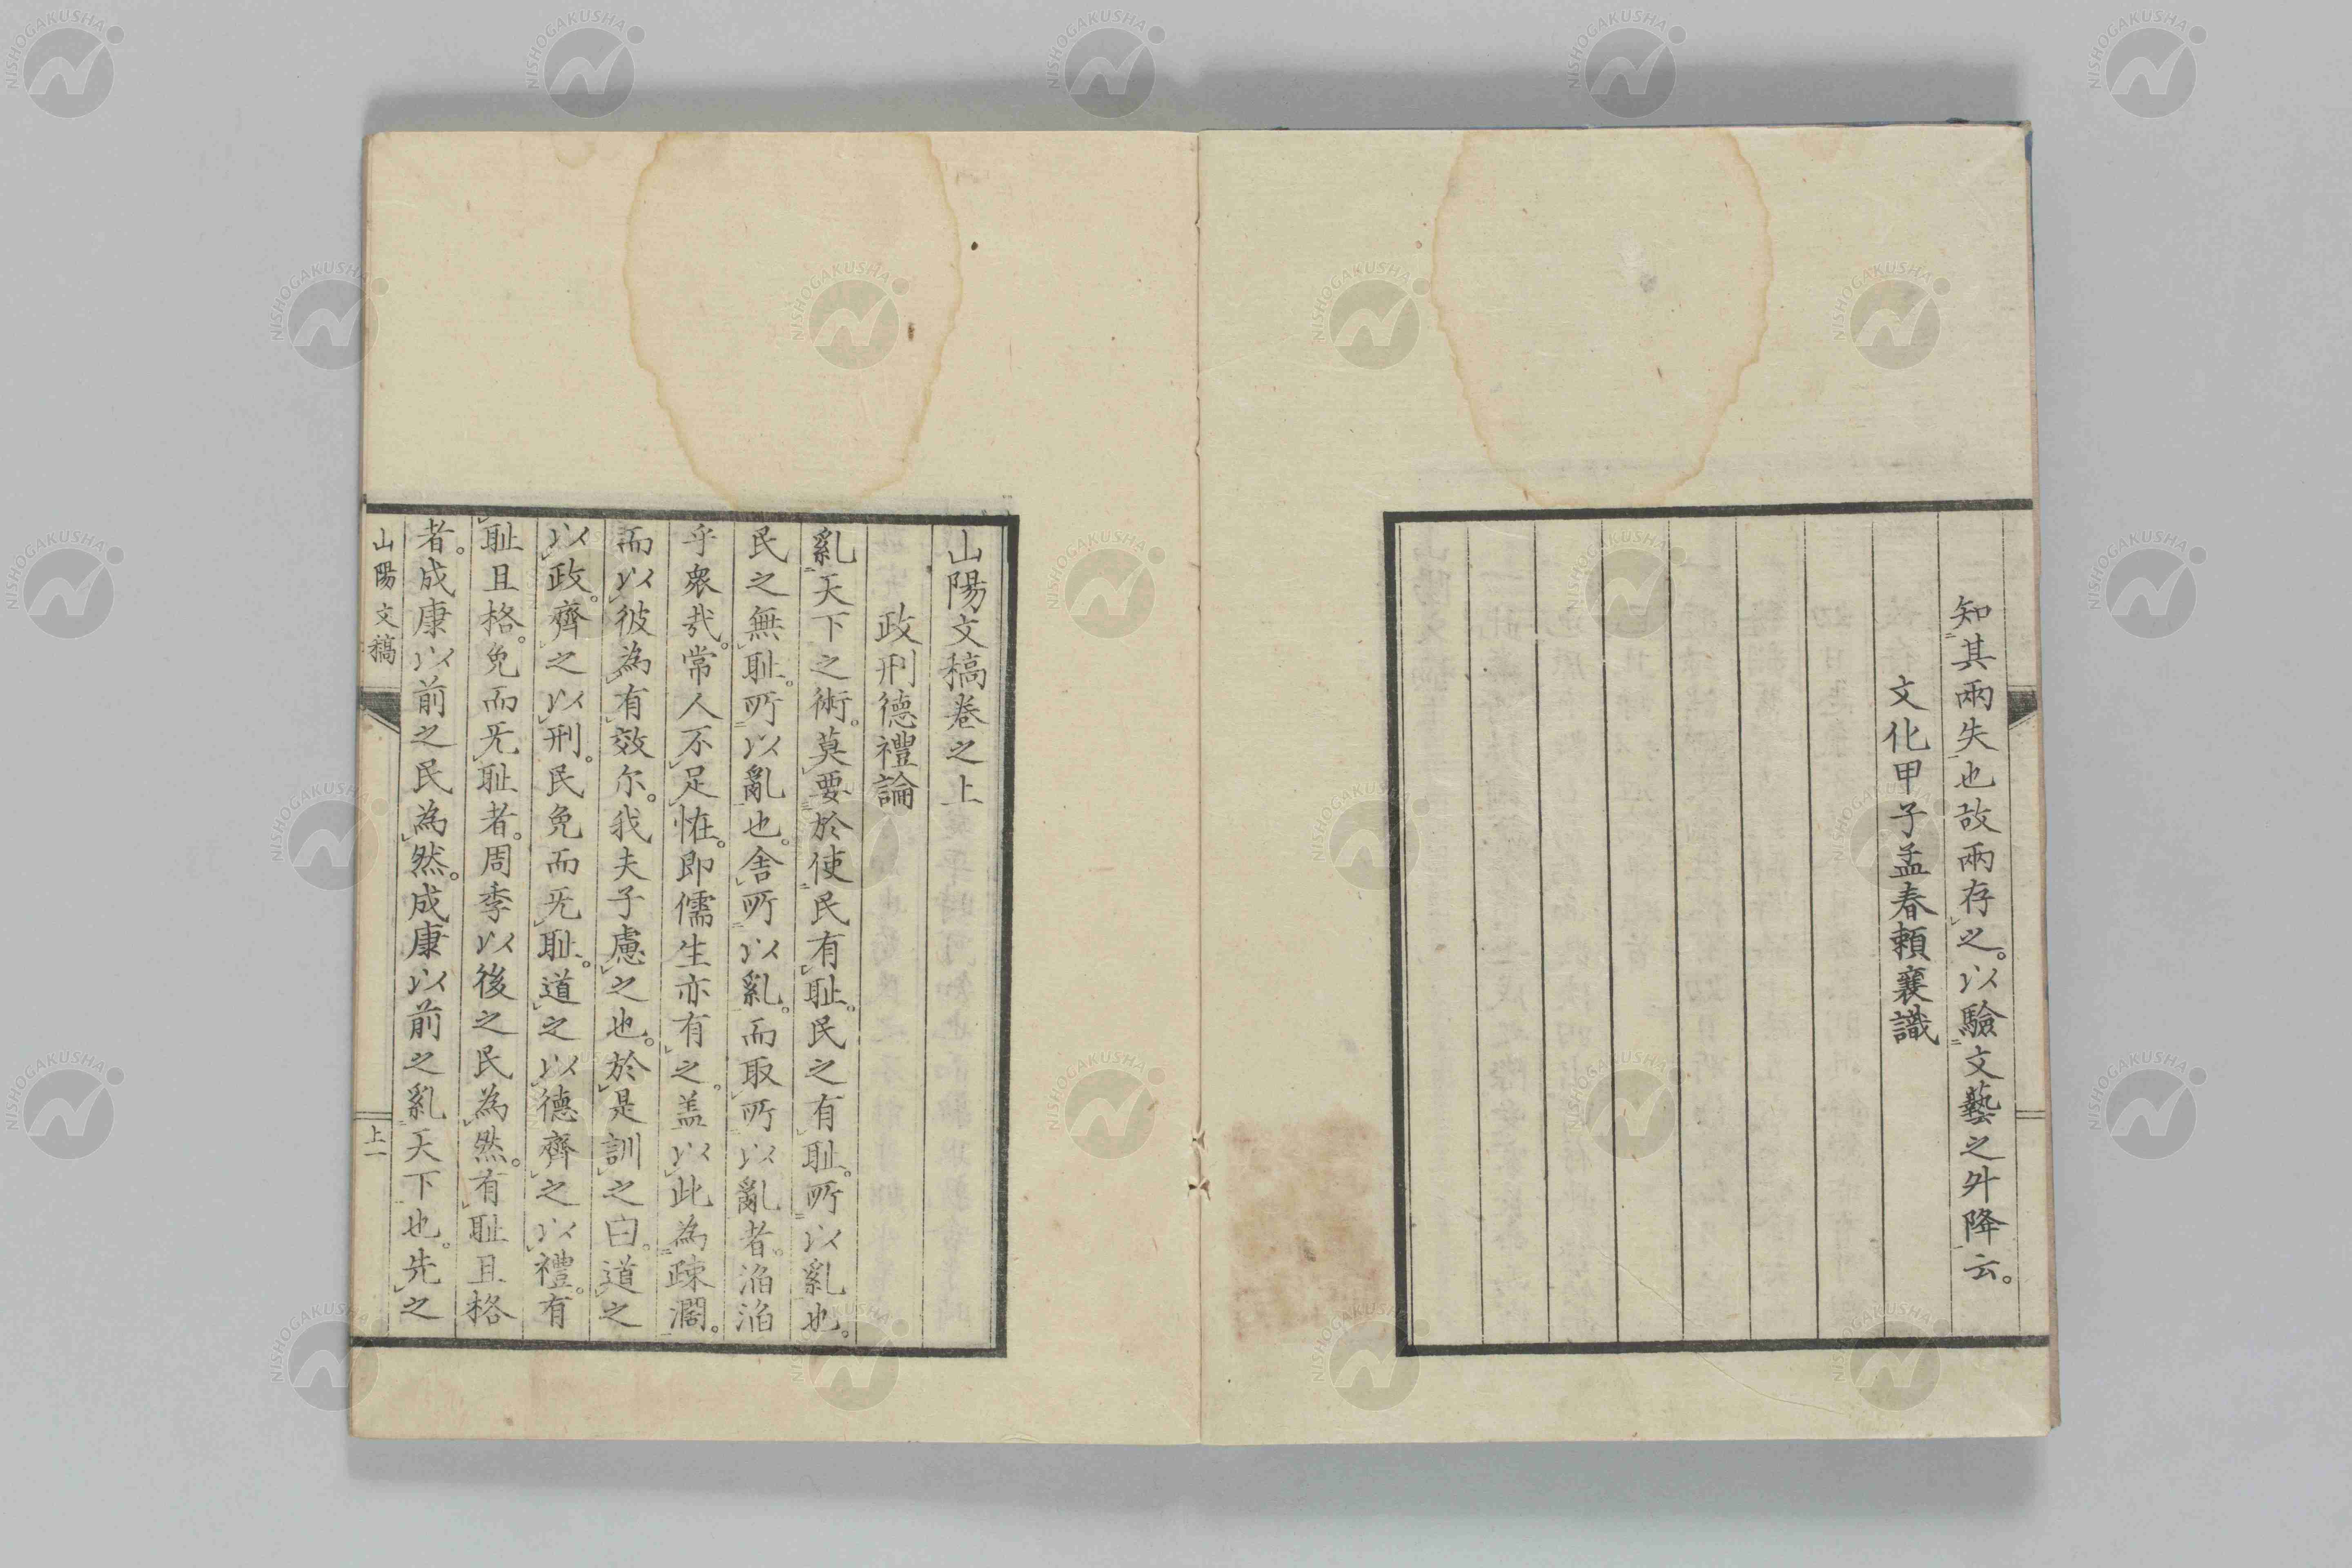 知其兩失也故兩存之。以驗文藝之升降云。
文化甲子孟春賴襄識
山陽文稿卷之上
政刑德禮論
乿天下之術。莫要於使民有耻。民之有耻。所以乿也。
民之無耻。所以亂也。舍所以乿。而取所以亂者。滔滔
乎衆哉。常人不足恠。即儒生亦有之。盖以此為疎濶。
而以彼為有效尔。我夫子慮之也。於是訓之曰。道之
以政。齊之以刑。民免而无耻。道之以德齊之以禮。有
耻且格。免而无耻者。周季以後之民為然。有耻且格
者。成康以前之民為然。成康以前之乿天下也。先之
山陽文稿 上一
NISHOGAKUSHA